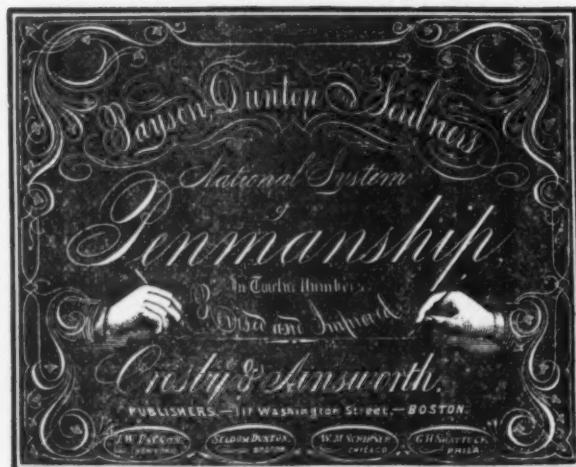 Payson, Dunton & Scribner's
National System
of
Penmanship,
In Twelve Numbers.
Revised and Improved.
Crosby & Ainsworth.
PUBLISHERS.—117 Washington Street,—BOSTON.
J.W. PAYSON, SELDOM DUNTON, W.M. SCRIBNER, G.H. SHATTUCK,
BOSTON. CHICAGO. PHILA.